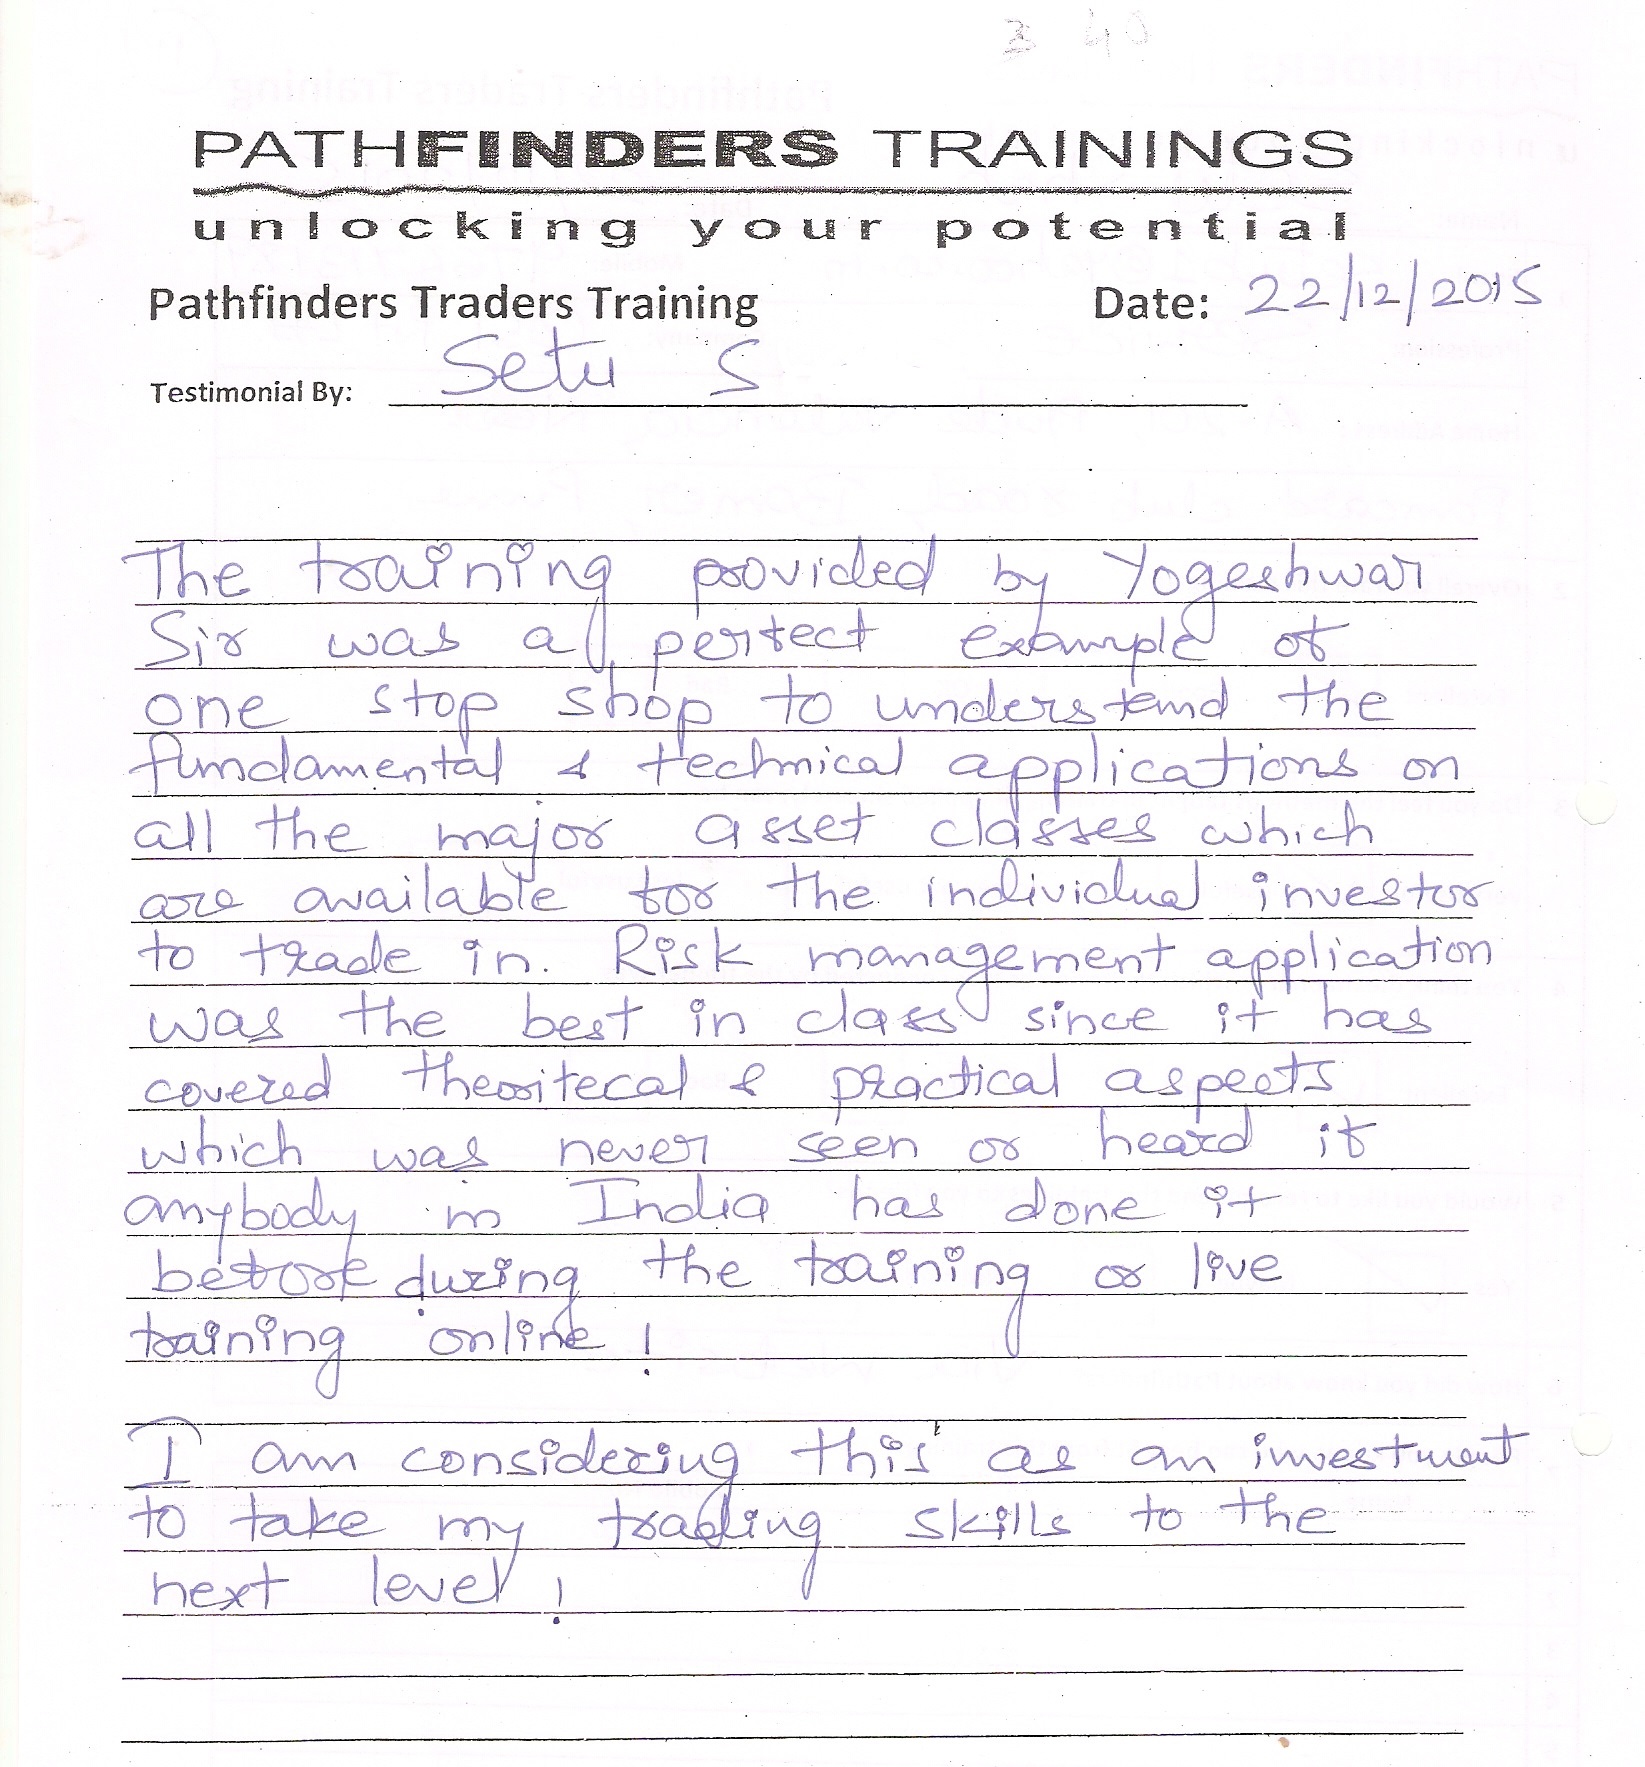 PATHFINDERS TRAININGS
unlocking your potential
Pathfinders Traders Training Date: 22/12/2015
Testimonial By: Setu S
The training provided by Yogeshwar
Sir was a perfect example of
one stop shop to understand the
fundamental & technical applications on
all the major asset classes which
are available for the individual investor
to trade in. Risk management application
was the best in class since it has
covered theoritecal & practical aspects
which was never seen or heard if
anybody in India has done it
before during the training or live
training online!
I am considering this as an investment
to take my trading skills to the
next level!